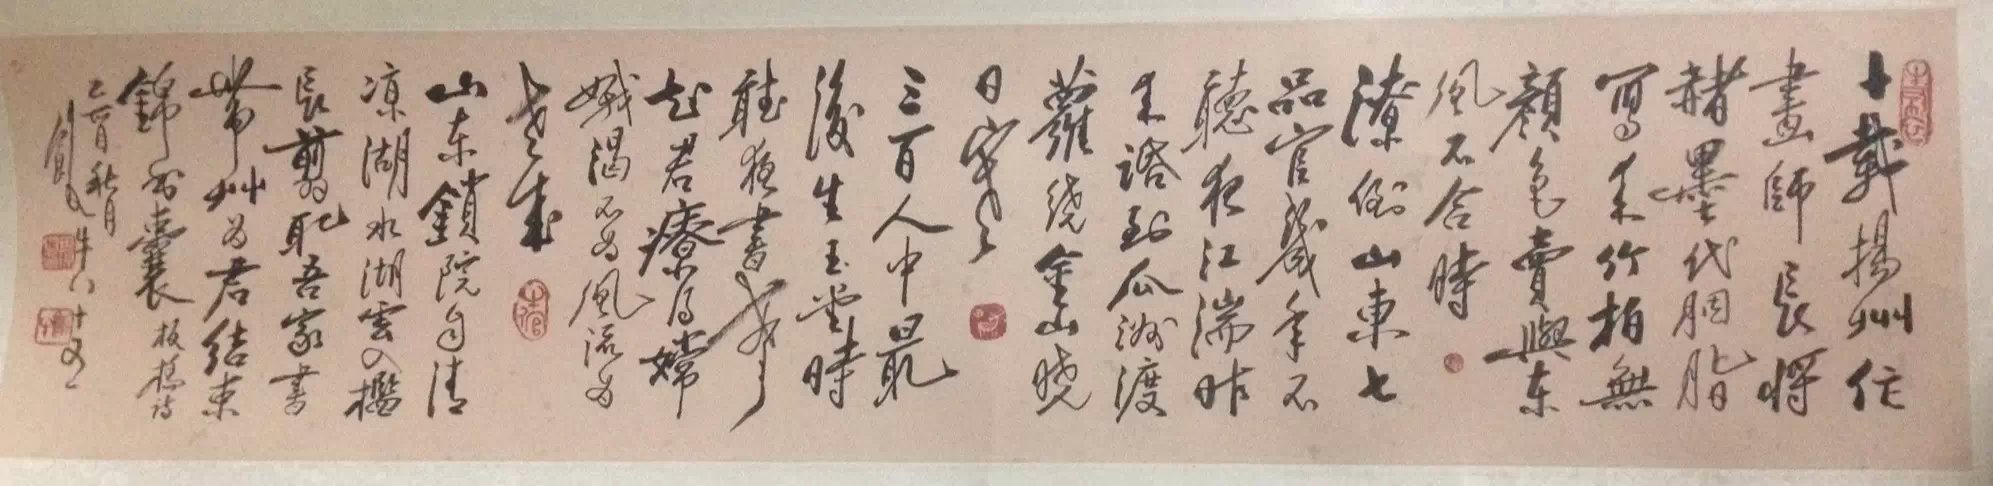 十載揚州作
畫師長將
赭墨代胭脂
寫來竹柏無
顏色賣與東
風不合時
潦倒山東七
品官幾年不
聽夜江湍昨
來話到瓜洲渡
夢繞金山曉
日寒
三百人中最
後生玉堂時
聽夜書聲
知君療得嫦
娥渴不為風流為
老成
山東鎖院自清
涼湖水湖雲入檻
長剪取吾家書
帶艸為君結束
錦詩囊 板橋詩
乙酉秋月
年八十五